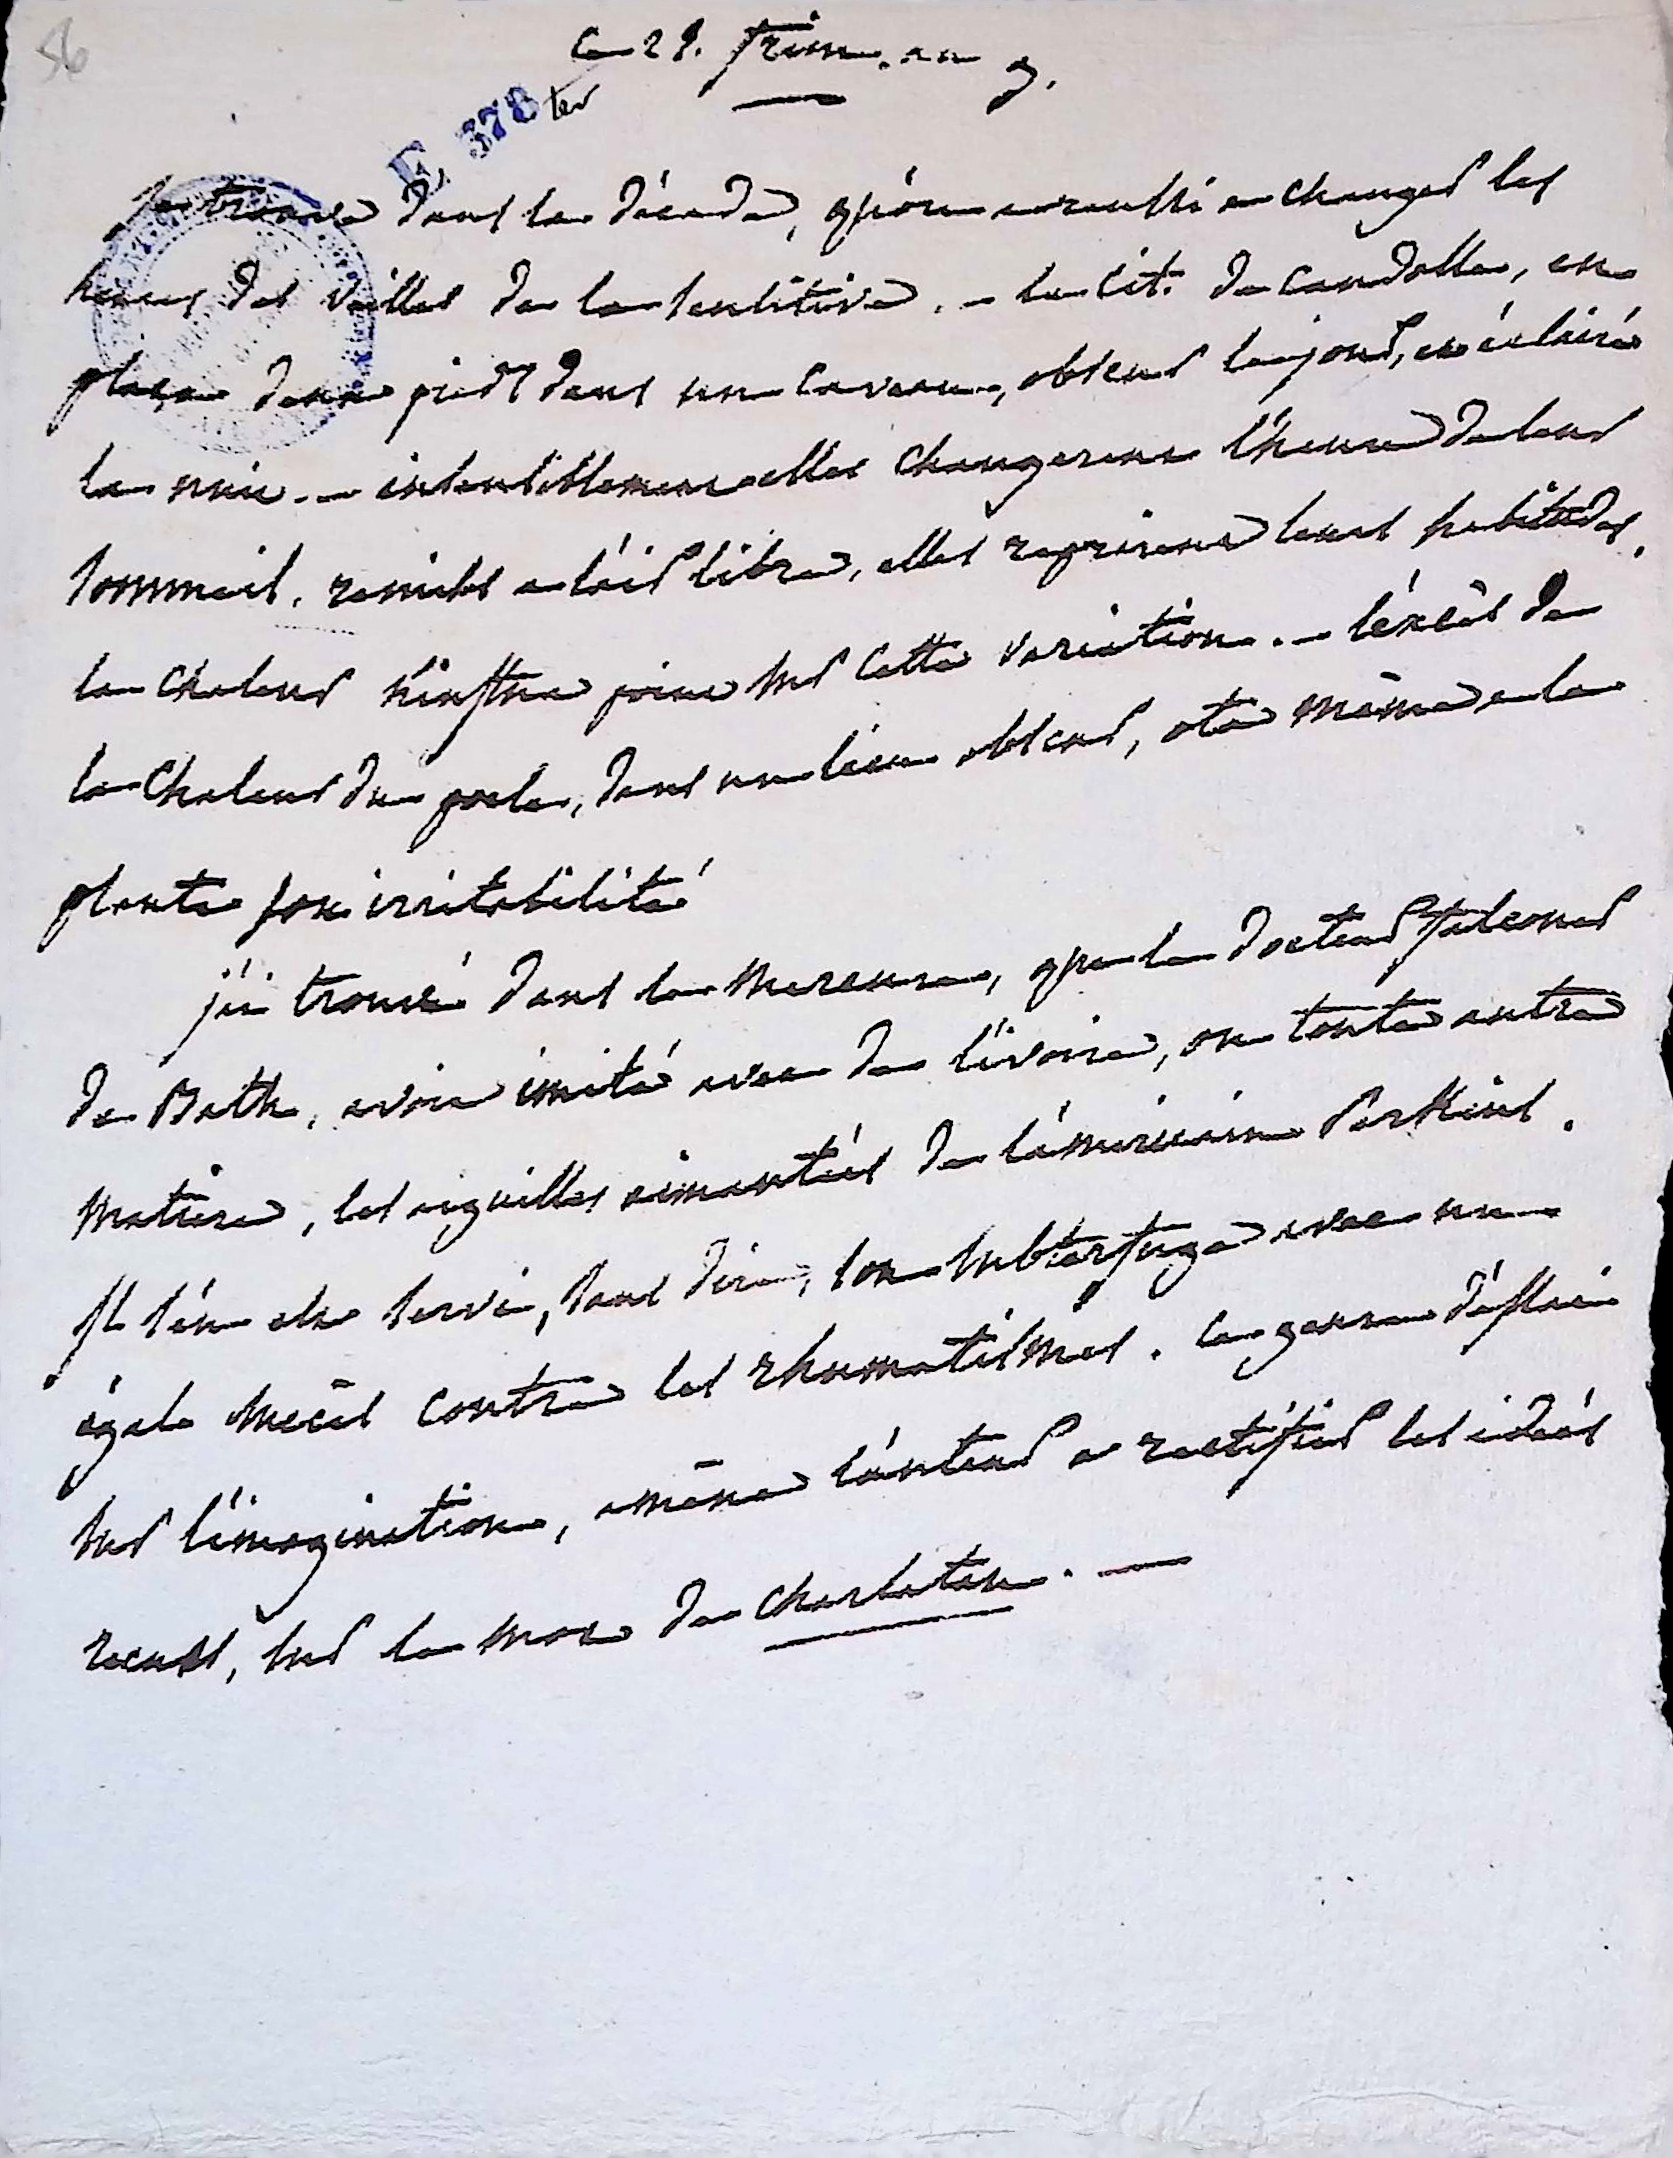 56
ce 29. frim. an 9.
E 378 ter
je trouve dans la décade, qu'on a reussi a changer les
heures des veilles de la sensitive. – le Cit. de Candolle, en
plaça deux pieds dans un caveau, obscur le jour, et éclairé
la nuit. – insensiblement elles changerent l'heure de leur
sommeil. remises a l'air libre, elles reprirent leurs habitudes.
la chaleur n'influe point sur cette variation. – l'éxcès de
la chaleur du poele, dans un lieu obscur, ote même a la
plante son irritabilité
j'ai trouvé dans le mercure, que le docteur falconer
de Bath, avoit imité avec de l'ivoire, ou toute autre
matiere, les aiguilles aimantées de l'américain Perkins.
Il s'en est servi, sans dire, son subterfuge avec un
égal succès contre les rhumatismes. ce genre d'effet
sur l'imagination, améne l'auteur a rectifier les idées
recues, sur le mot de charlatan. —